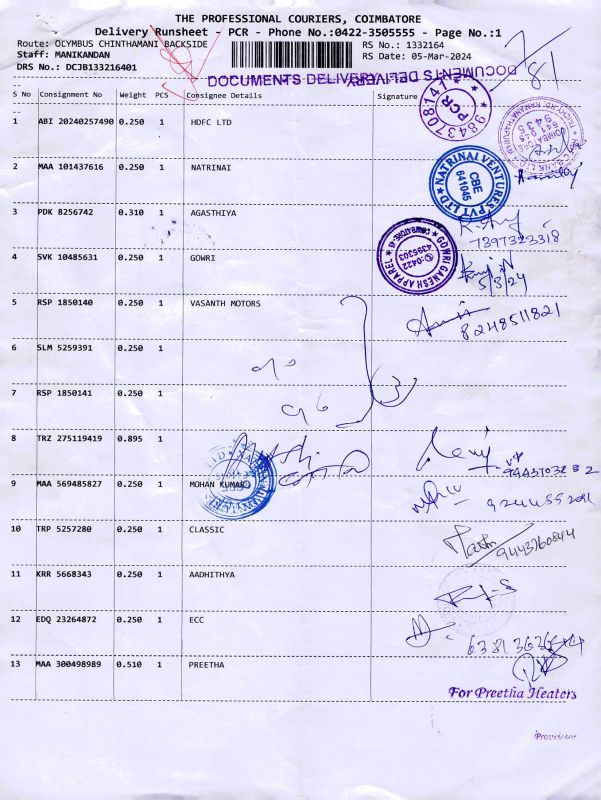 THE PROFESSIONAL COURIERS, COIMBATORE
Delivery Runsheet - PCR - Phone No.:0422-3505555 - Page No.:1
Route: OLYMBUS CHINTHAMANI BACKSIDE RS No.: 1332164
Staff: MANIKANDAN RS Date: 05-Mar-2024
DRS No.: DCJB133216401
DOCUMENTS DELIVERY
DOCUMENTS DELIVERY
S No Consignment No Weight PCS Consignee Details Signature
PCR
9843708147
1 ABI 20240257490 0.250 1 HDFC LTD
2 MAA 101437616 0.250 1 NATRINAI
NATRINAI VENTURES PVT LTD
CBE
641045
3 PDK 8256742 0.310 1 AGASTHIYA
7397323318
4 SVK 10485631 0.250 1 GOWRI
GOWRI GANESH APPAREL
0422
4395303
5/3/24
5 RSP 1850140 0.250 1 VASANTH MOTORS
8248511821
6 SLM 5259391 0.250 1
7 RSP 1850141 0.250 1
8 TRZ 275119419 0.895 1
9 MAA 569485827 0.250 1 MOHAN KUMAR
10 TRP 5257280 0.250 1 CLASSIC
9443760844
11 KRR 5668343 0.250 1 AADHITHYA
12 EDQ 23264872 0.250 1 ECC
13 MAA 300498989 0.510 1 PREETHA
For Preetha Heaters
Proprietor